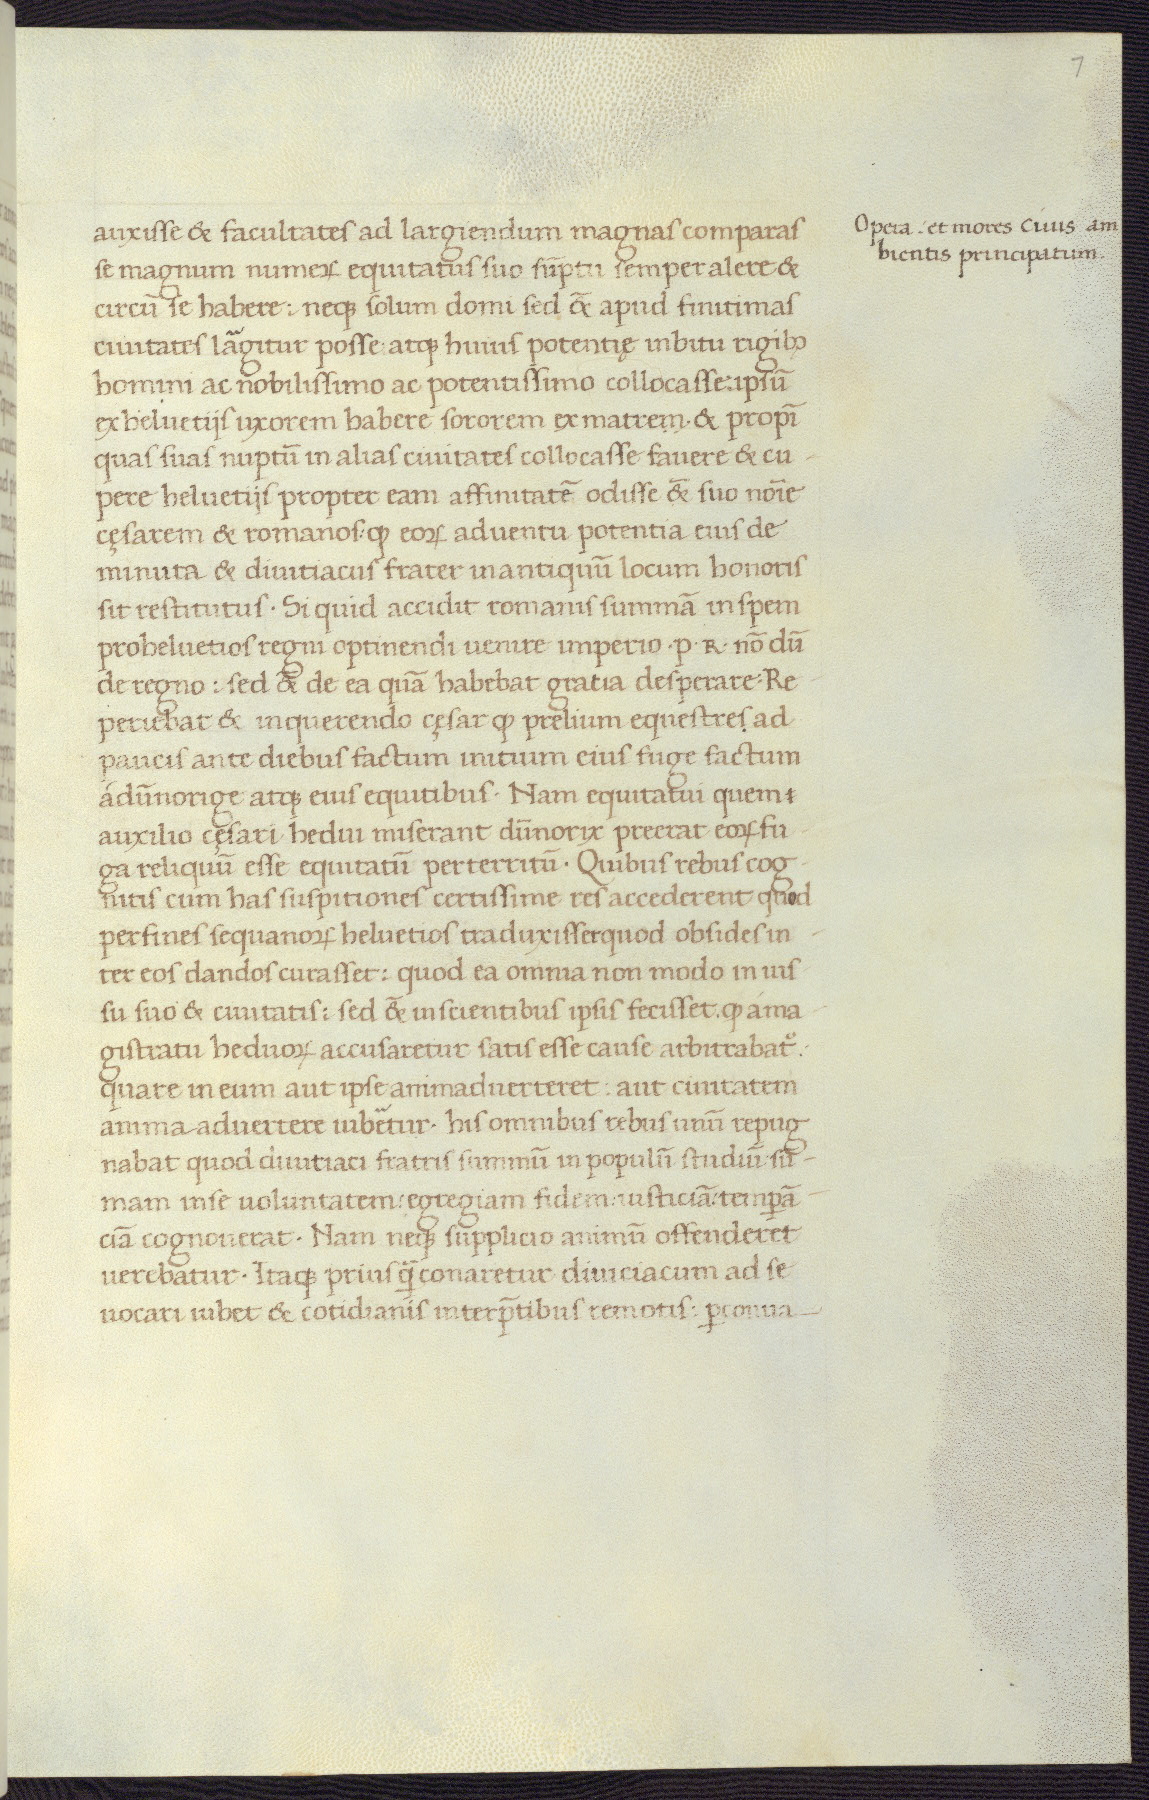 7
auxisse & facultates ad largiendum magnas comparas
se magnum numeꝝ equitatus suo sūptu semper alere &
circū se habere: neqꝫ solum domi sed &̄ apud finitimas
ciuitates lāgitur posse atqꝫ huius potentię inbitu rigibꝫ
homini ac nobilissimo ac potentissimo collocasse: ipsū
ex heluetijs uxorem habere sororem ex matrem. & propī
quas suas nuptū in alias ciuitates collocasse fauere & cu
pere heluetijs propter eam affinitatē odisse &̄ suo noīe
cęsarem & romanos: ꝙ eoꝝ aduentu potentia eius de
minuta & diuitiacus frater in antiquū locum honoris
sit restitutus. Si quid accidit romanis summā in spem
pro heluetios regni optinendi uenire imperio .p.R. nō dū
de regno: sed &̄ de ea quā habebat gratia desperare: Re
periebat & inquerendo cęsar ꝙ prelium equestres ad
paucis ante diebus factum initium eius fuge factum
a dūnorige atqꝫ eius equitibus. Nam equitatui quem
auxilio cęsari hedui miserant dūnorix preerat eoꝝ fu
ga reliquū esse equitatū perterritū. Quibus rebus cog
nitis cum has suspitiones certissime res accederent quod
per fines sequanoꝝ heluetios traduxisset quod obsides in
ter eos dandos curasset: quod ea omnia non modo in uis
su suo & ciuitatis: sed &̄ in scientibus ipsis fecisset. ꝙ a ma
gistratu heduoꝝ accusaretur satis esse cause arbitrabat᷑.
quare in eum aut ipse animaduerteret: aut ciuitatem
anima aduertere iubētur. his omnibus rebus unū repug
nabat quod diuitiaci fratris summū in populū studiū sū
mam in se uoluntatem: egregiam fidem: iusticiā: temꝑā
ciā cognouerat. Nam neqꝫ supplicio animū offenderet
uerebatur. Itaqꝫ prius q̄ conaretur diuiciacum ad se
uocari iubet & cotidianis interp̄tibus remotis: ꝑ conua
Opera. et mores Cuius am
bientis principatum.